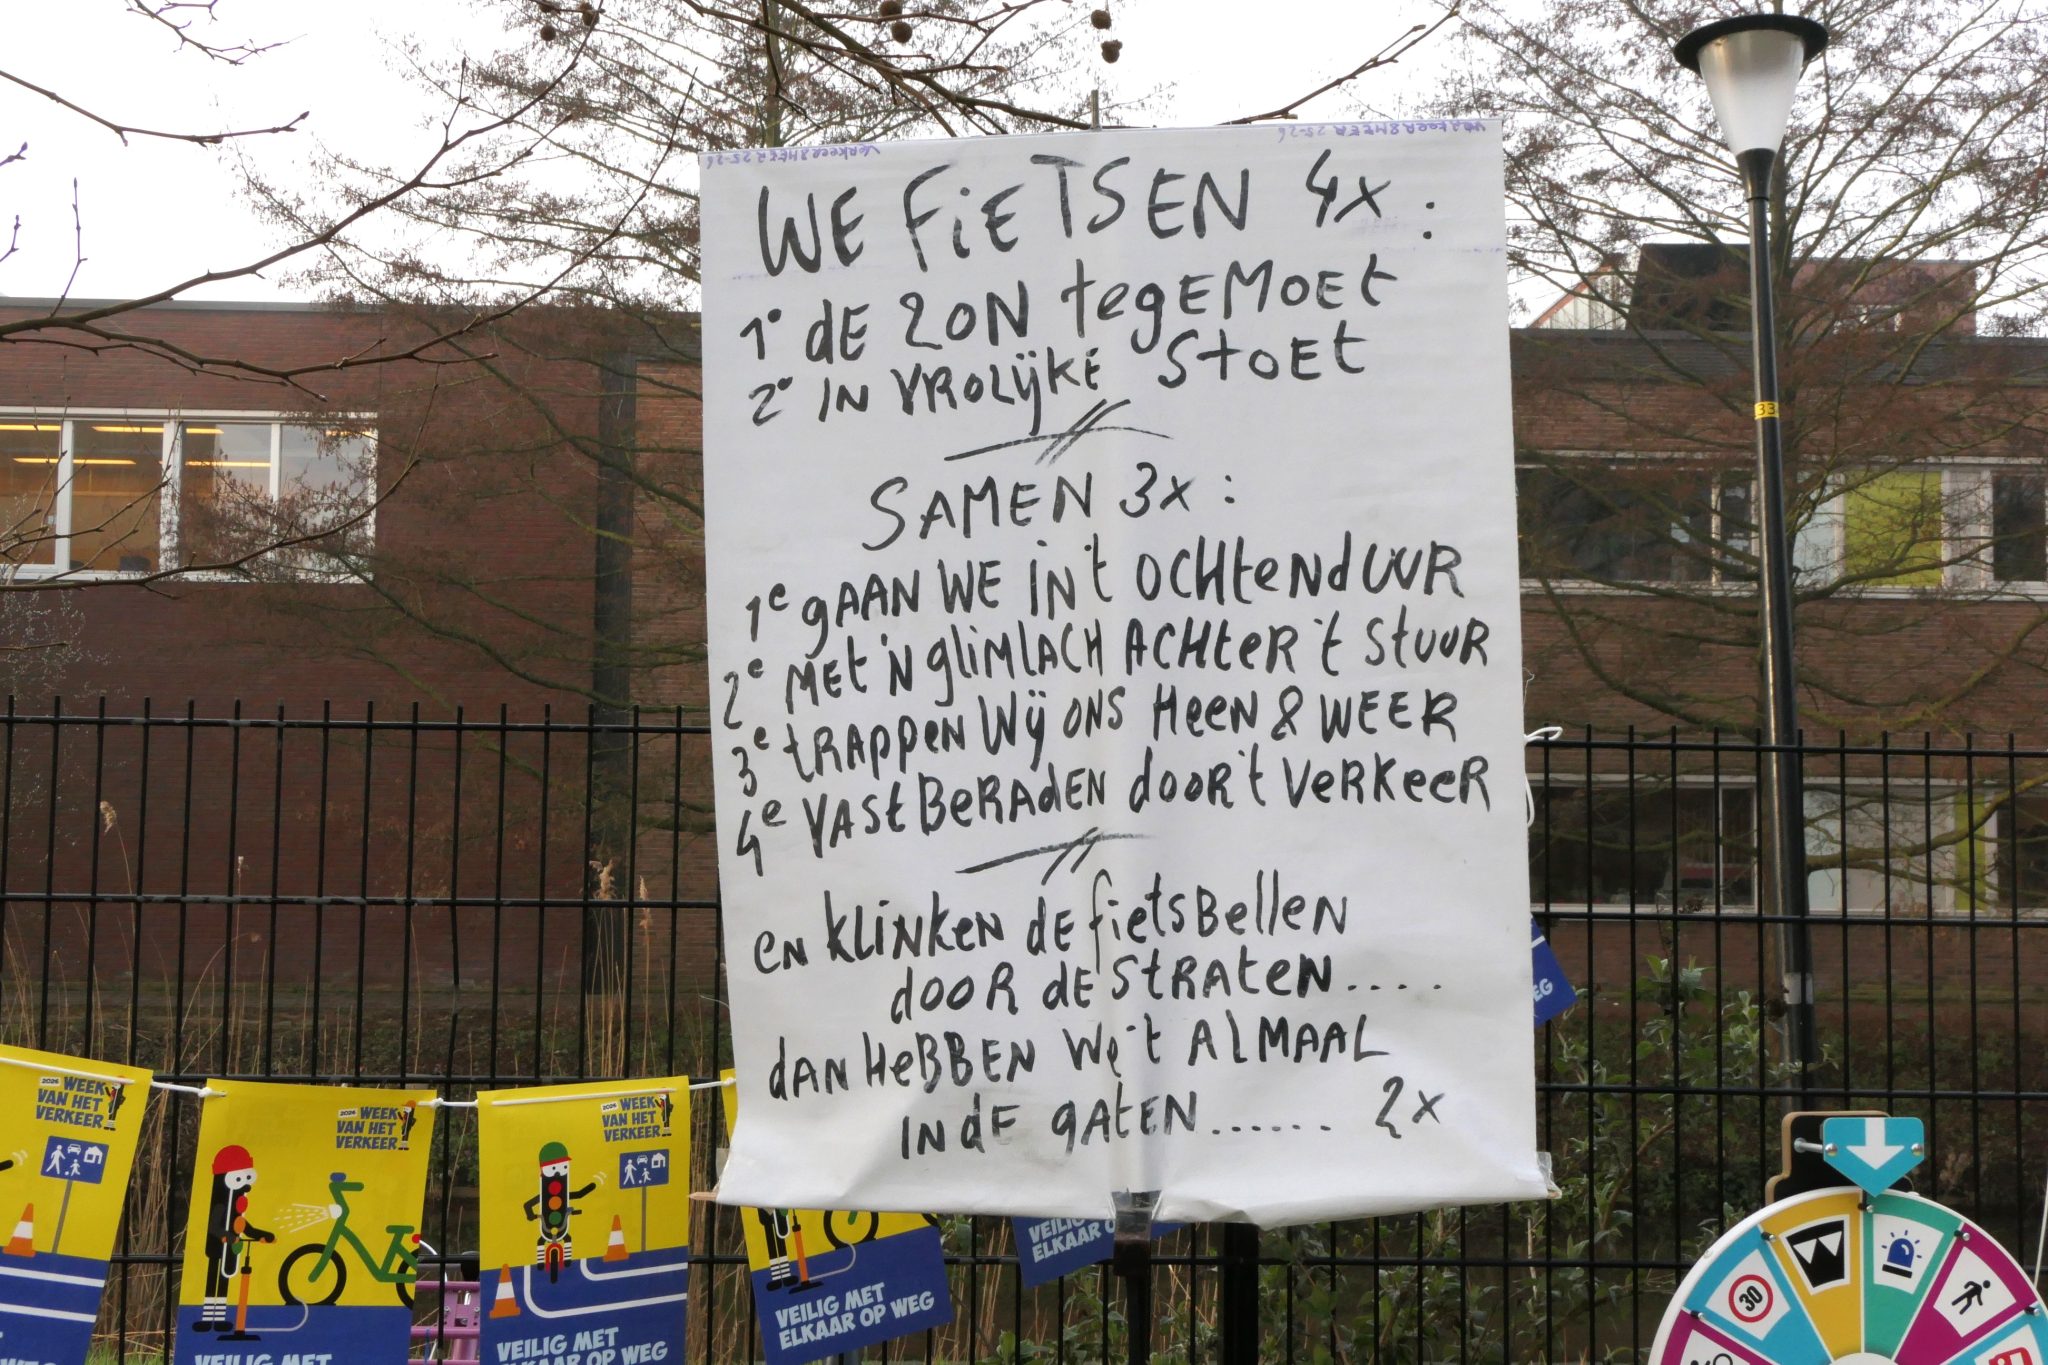 VERKEERSMEER 25-26
VERKEERSMEER 25-26
WE FiETSEN 4x :
1° dE ZON tegEMOEt
2° IN VROLijKE StOEt
SAMEN 3x :
1e gAAN WE iN 't OCHtENdUUR
2e MEt 'N gliMlACH ACHtER 't StUUR
3e tRAppeN Wij ONS HeeN & WEER
4e VAStBeRAdEN dooR 't VeRKeeR
eN KliNKeN dE fietsBelleN
dooR dE StRAteN....
dAN HeBBEN We 't AlMAAL
IN dE gAtEN...... 2x
33
2026 WEEK
VAN HET
VERKEER
2026 WEEK
VAN HET
VERKEER
VEILIG MET
2026 WEEK
VAN HET
VERKEER
VEILIG MET
ELKAAR OP WEG
VEILIG MET
ELKAAR OP WEG
ELKAAR
30